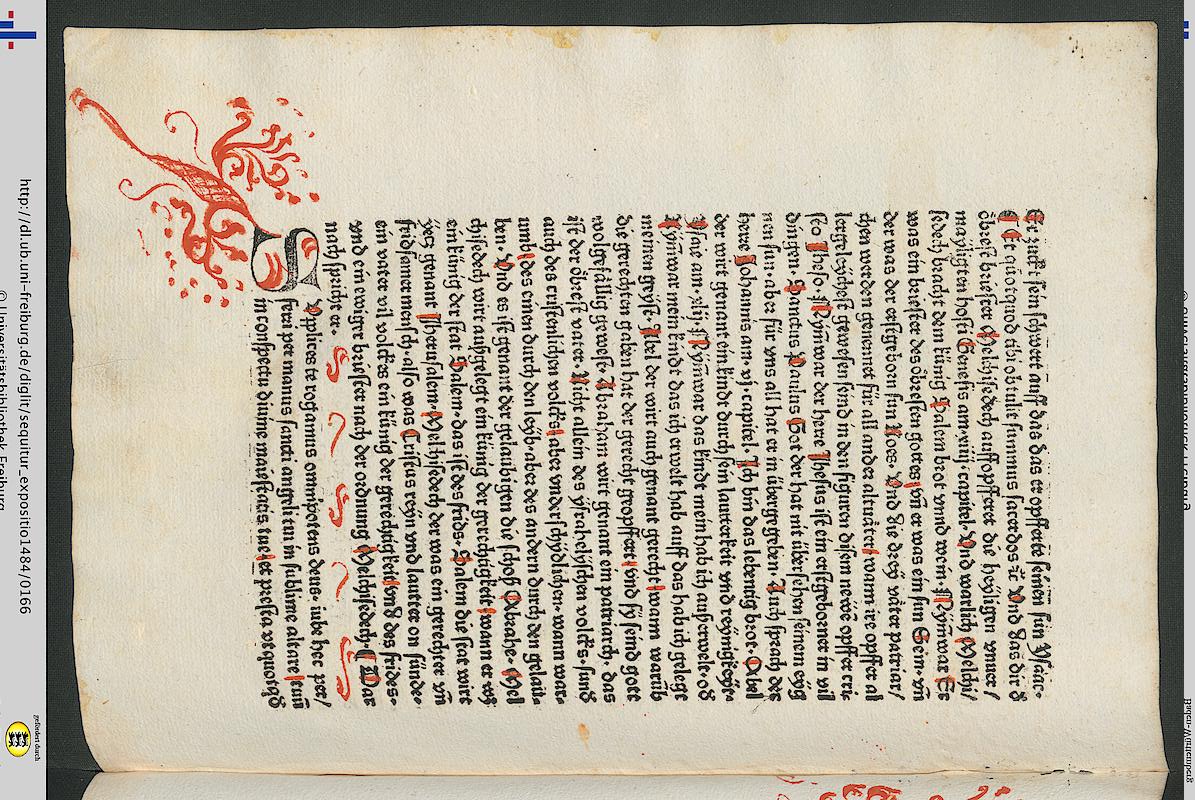 Er zuckt sein schwert auff das das er opfferte seinen sun Ysaac·
Et quotquod tibi obtulit summus sacerdos ꝛc Und das dir d
öbrest briester Melchisedech auffopfferet die heyligen vnuer/
mayligten hosti Genesis am·xiiij·capitel·Und warlich Melchi/
sedech bracht dem künig Salem brot vnnd wein·Nym war Er
was ein briester des öbresten gottes vñ er was ein sun Sem·vñ
der was der erstgeborn sun Noes·Und die drey väter patriar/
chen werden genennet für all ander altväter wann ire opffer al
lergeleychest gewesen seind in den figuren disem newē opffer cri·
sto Jheso·Nym war der herre Jhesus ist ein erstgeborner in vil
dingen·Sanctus Paulus Got der hat nit übersehen seinem eyg
nen sun·aber für vns all hat er in übergeben·Auch sprach der
herre Johannis am·vj·capitel·Ich bin das lebentig brot·Abel
der wirt genant ein kindt durch sein lauterkeit vnd reynigkeyte·
Ysaie am·xlij·Nym war das kindt mein hab ich ausserwelt·od
Nym war mein kindt das ich erwelt hab auff das hab ich gelegt
meinen geyst·Abel der wirt auch genant gerecht wann warüb
die gerechten gaben hat der gerecht geopffert vnd sy seind gott
wolgefällig gewest·Abraham wirt genant ein patriarch·das
ist der öbrest vater·Nicht allein des ysrahelischen volcks·sund
auch des cristenlichen volcks aber vnderschydlichen·wann war·
umb des einen durch den leyb·aber des andern durch den gelau·
ben·Und es ist genant der gelaubigen die schoß Abrahe·Mel
chisedech wirt außgelegt ein künig der gerechtigkeit·wann er wz
ein künig der stat Salem·das ist des frids·Salem die stat wirt
yetz genant Jherusalem·Melchisedech der was ein gerechter vñ
fridsamer mensch·also was Cristus reyn vnd lauter on sünde·
ein vater vil volckes ein künig der gerechtigkeit vnd des frides·
vnd ein ewiger briester nach der ordnung Melchisedech· Dar
nach spricht er·
Supplices te rogamus omnipotens deus· iube hec per/
ferri per manus sancti angeli tui in sublime altare tuum
in conspectu diuine maiestatis tue et presta vt quotqd
http://dl.ub.uni-freiburg.de/diglit/sequitur_expositio1484/0166
© Universitätsbibliothek Freiburg
gefördert durch